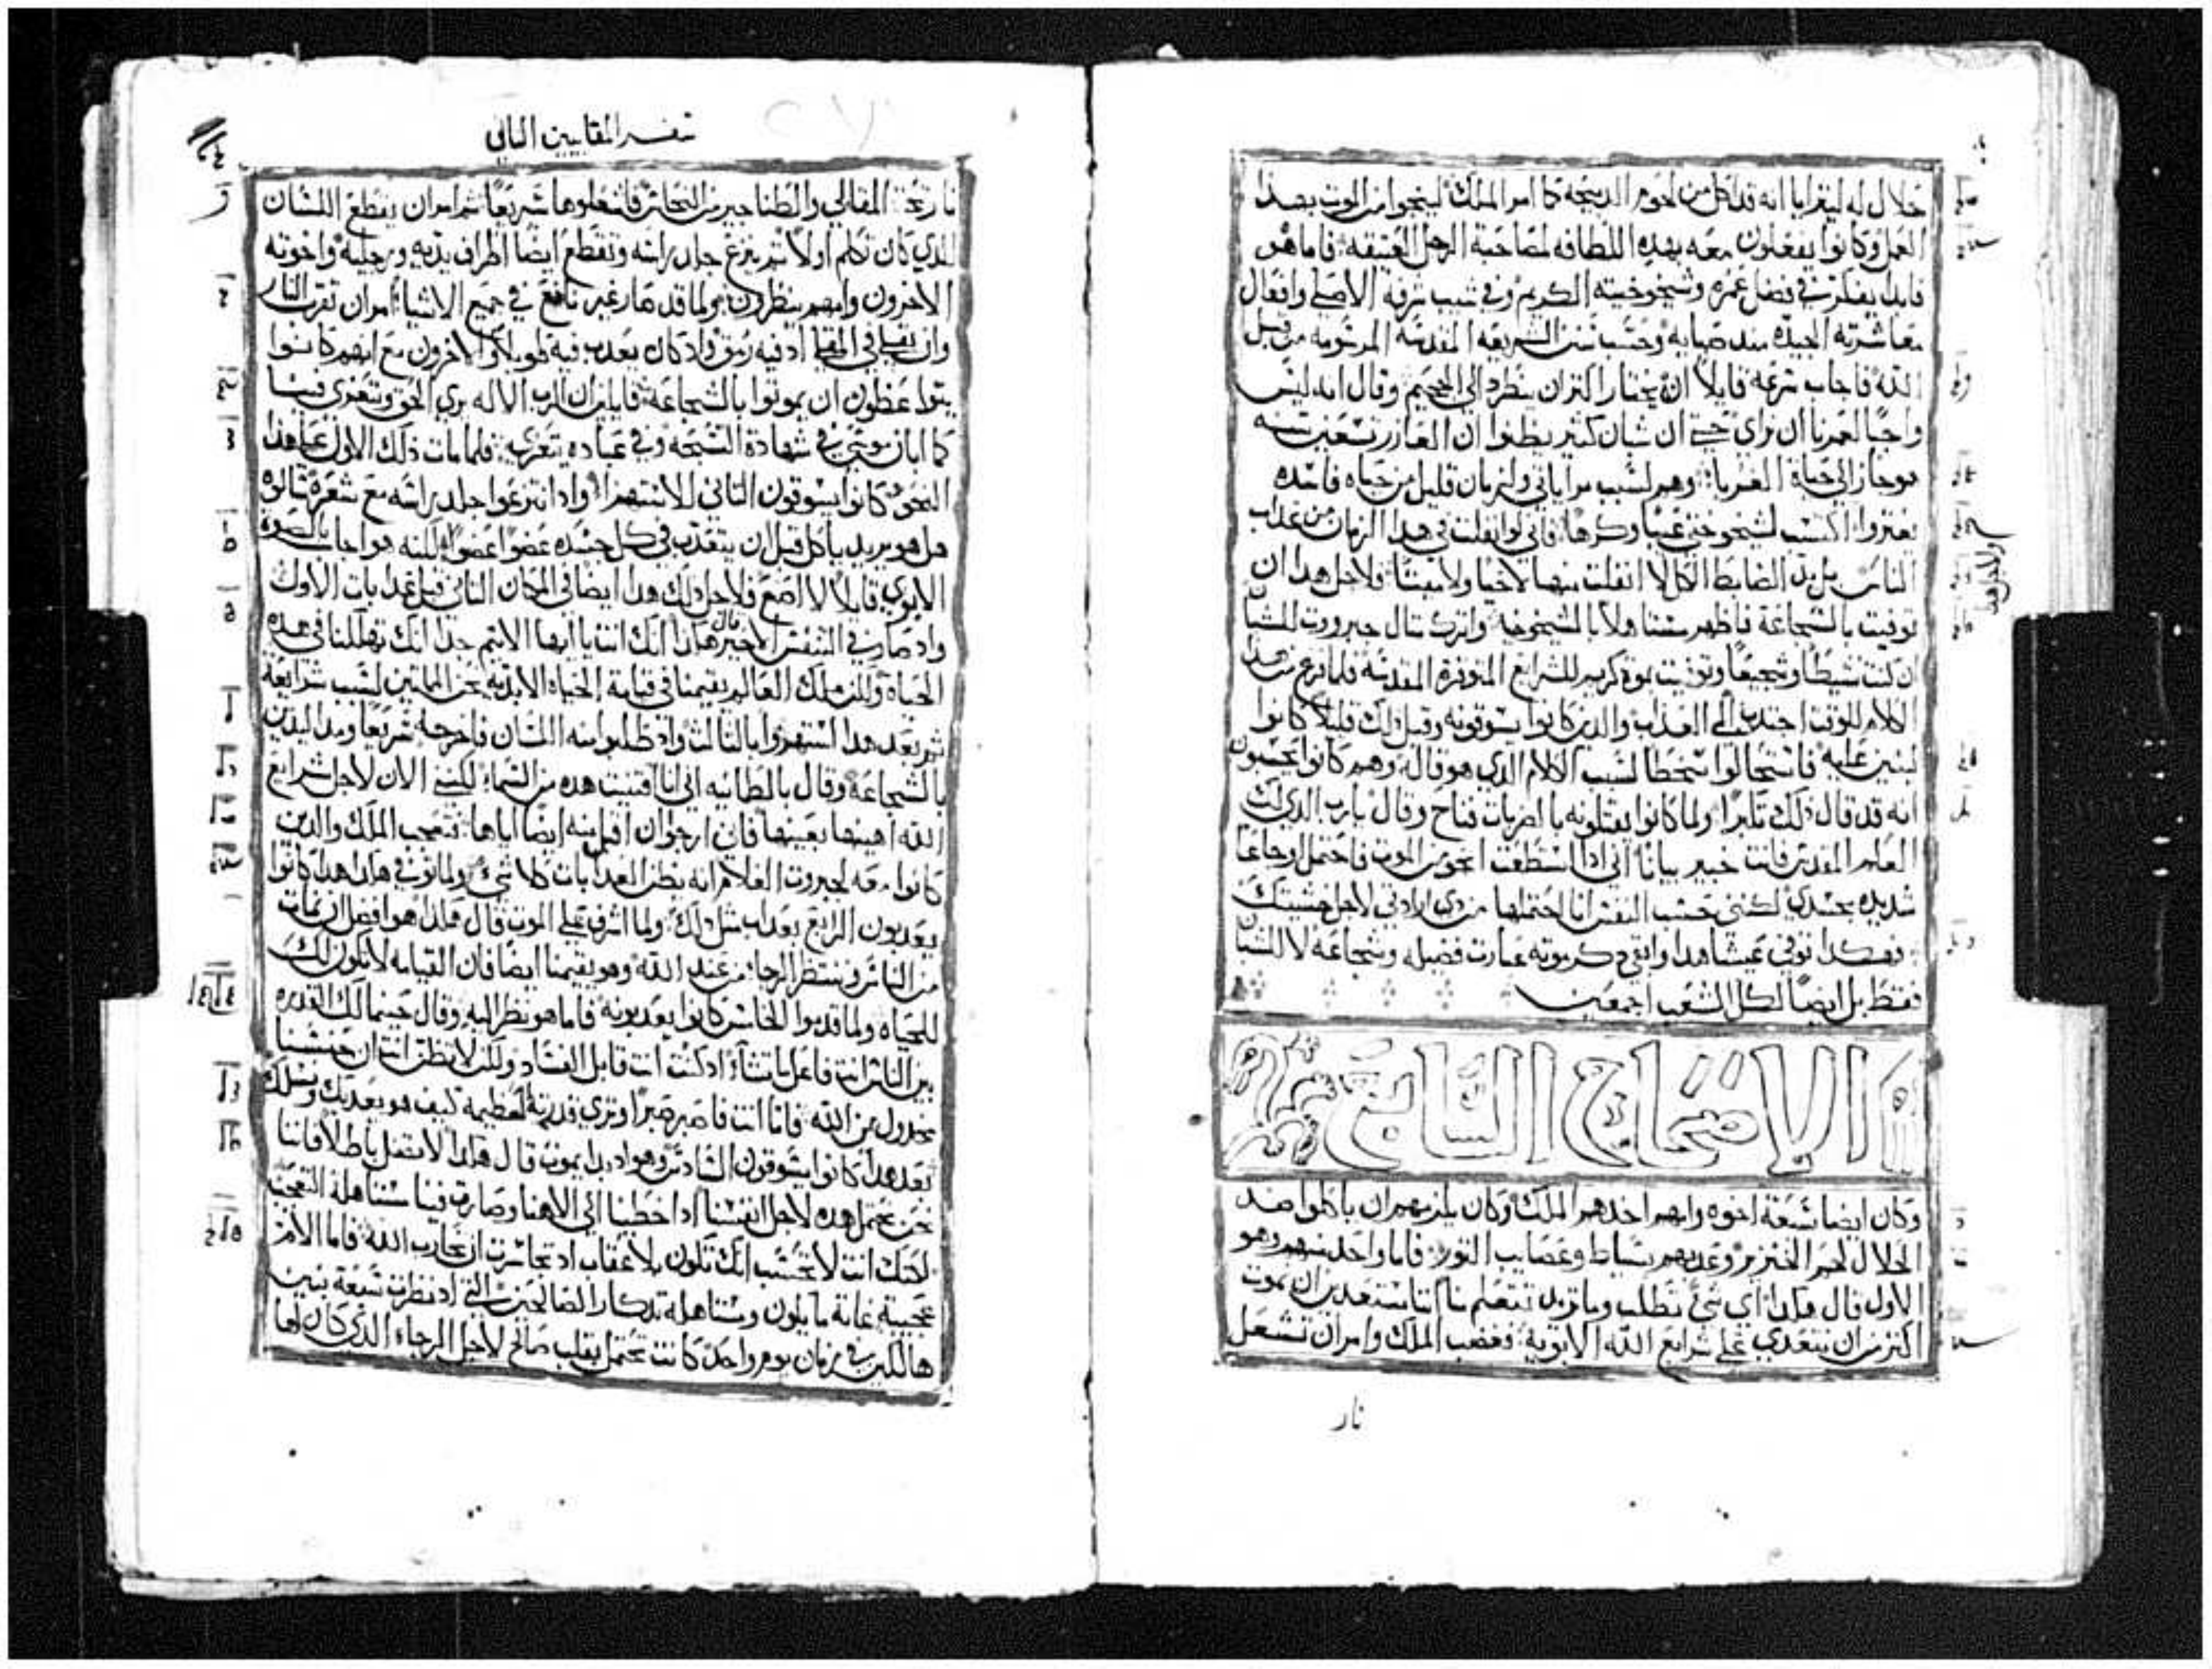 حلال له ليتراياا انه قد اكل من لحوم الدبيحه كما امر الملك لينجوا من الموت بهدا
العمل وكانوا يفعلون معه بهده اللطافه لمصاحبة الرجل العتيقه فاما هو
فابدا يفتكر في فضل عمره وشيخوخيته الكريم وفي شيب شرفه الاصلي وافعال
معاشرته الجيده مند صبايه وحسب سنن الشريعه المقدسه المرسومه من قبل
الله فاجاب سرعه قايلاً انه يختار اكتر ان ينطرد الى الجحيم وقال انه ليس
واجبًا لعمرنا ان نراي حتي ان شبان كتير يظنوا ان العازر تسعين سنه
هو جاز الى حياة الغربا وهم لسبب مراياتي ولزمان قليل من حياه فاسده
يغتروا اكتسب لشيخوختي عيبا وكرها فاني لو انفلت في هدا الزمان من عداب
الناس بل يد الضابط الكل لا انفلت منها لاحيا ولا ميتا فلاجل هدا ان
توفيت بالشجاعة فاظهر مستاهلا بالشيخوخه واترك متال جبروت للشبان
ان كنت نشيطا وشجيعا وتوفيت بموته كريم للشرايع الموقرة المقدسه فلما فرغ من هدا
الكلام للوقت اجتدب الى العداب والدين كانوا يسوقونه وقبل دلك قليلا كانوا
لينين عليه فاستحالوا سخطا لسبب الكلام الدي هو قاله وهم كانوا يحسبون
انه قد قال دلك تكبرا ولما كانوا يقتلونه بالضربات فناح وقال يارب الدي لك
العلم المقدس فانت خبير بيانا اني ادا استطعت انجو من الموت فاحتمل اوجاعا
شديده بجسدي لكنني بحسب النفس انا احتملها من دي ارادتي لاجل خشيتك
فهكدا توفى عيشا هدا وابقى دكر موته عبارت فضيله وشجاعه لا للشبان
فقط بل ايضاً لكل الشعب اجمعين
الاصحاح السابع
وكان ايضا سبعة اخوه وامهم اخدهم الملك وكان يلزمهم ان ياكلوا ضد
الحلال لحم الخنزير وعدبهم بسياط وعصايب التور فاما واحد منهم وهو
الاول قال هكدا اي شي تطلب وما تريد تتعلم منا اننا مستعدين ان نموت
اكتر من ان نتعدي على شرايع الله الابويه فغضب الملك وامر ان تشعل
نار
سفر المقابيين التاني
نار تحت المقالي والطناجير من النحاس فاشعلوها سريعاً تم امر ان يقطع اللسان
للدي كان تكلم اولا تم ينزع جلد راسه وتقطع ايضا اطراف يديه ورجليه واخوته
الاخرون وامهم ينظرون ولما قد صار غير نافع في جميع الاشيا امر ان تقرب النار
وان يقلي في المقلي اد فيه رمق واد كان يعدب فيه طويلا والاخرون مع امهم كانوا
يتواعظون ان يموتوا بالشجاعة قايلين ان الرب الاله يري الحق ويتعزى فينا
كما ابان موسى في شهادة التسبحه وفي عباده يتعزي فلما مات دلك الاول على هدا
النحو كانوا يسوقون التاني للاستهزا وادا نتزعوا جلد راسه مع شعره سالوه
هل هو يريد ياكل قبل ان يتعدب في كل جسده عضوا عضوا لكنه هو اجاب بالصوت
الابوي قايلا لا اصنع فلاجل دلك هدا ايضا في المكان التاني قبل عدابات الاول
واد صار في النفس الاخير قال هكدا انك انت يا ايها الاتيم جدا انك تهلكنا في هده
الحياة ولكن ملك العالم يقيمنا في قيامة الحياه الابديه نحن المايتين لسبب شرايعه
تم بعد هدا استهزوا بالتالت واد طلبوا منه اللسان فاخرجه سريعا ومد اليدين
بالشجاعة وقال بالطمانيه اني انا اقتنيت هده من السما لكنني الان لاجل شرايع
الله اهينها بعينها فاني ارجو ان اقبل منه ايضا اياها فتعجب الملك والدين
كانوا معه لجبروت الغلام انه يظن العدابات كلا شي ولما توفي هكدا هدا كانوا
يعدبون الرابع بعداب متل دلك ولما اشرف على الموت قال هكدا هو افضل ان نمات
من الناس وننتظر الرجا من عند الله وهو يقيمنا ايضا فان القيامه لا تكون لك
للحياه ولما قدموا الخامس كانوا يعدبونه فاما هو نظر اليه وقال حينما لك القدره
بين الناس انت فاعل ما تشاء اد كنت انت قابل الفساد ولكن لا تظن انت ان جنسنا
مخدول من الله فاما انت فاصبر صبرا وتري قدرته العظيمه كيف هو يعدبك ونسلك
بعد هدا كانوا يسوقون السادس وهو اد بدا يموت قال هكدا لا تضل باطلا فاننا
نحن نحتمل هده لاجل انفسنا اد اخطينا الى الاهنا وصارت فينا مستاهلة التعجب
لكنك انت لا تحسب انك تكون بلا عقاب اد تجاسرت ان تحارب الله فاما الام
عجيبة غاية ما يكون ومستاهله تدكار الصالحين التي اد نظرت سبعة بنين
هالكين في زمان يوم واحد كانت تحتمل بقلب صالح لاجل الرجاء الدي كان لها